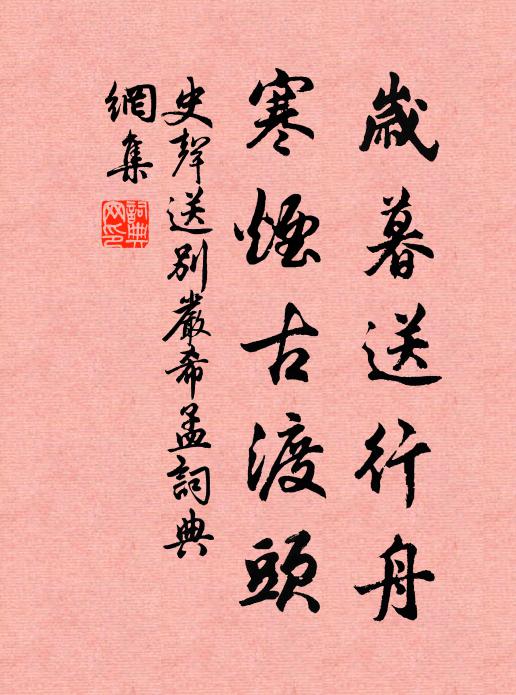 歲暮送行舟
寒煙古渡頭
史聲送別嚴希孟詞典
網集
詞典
网印